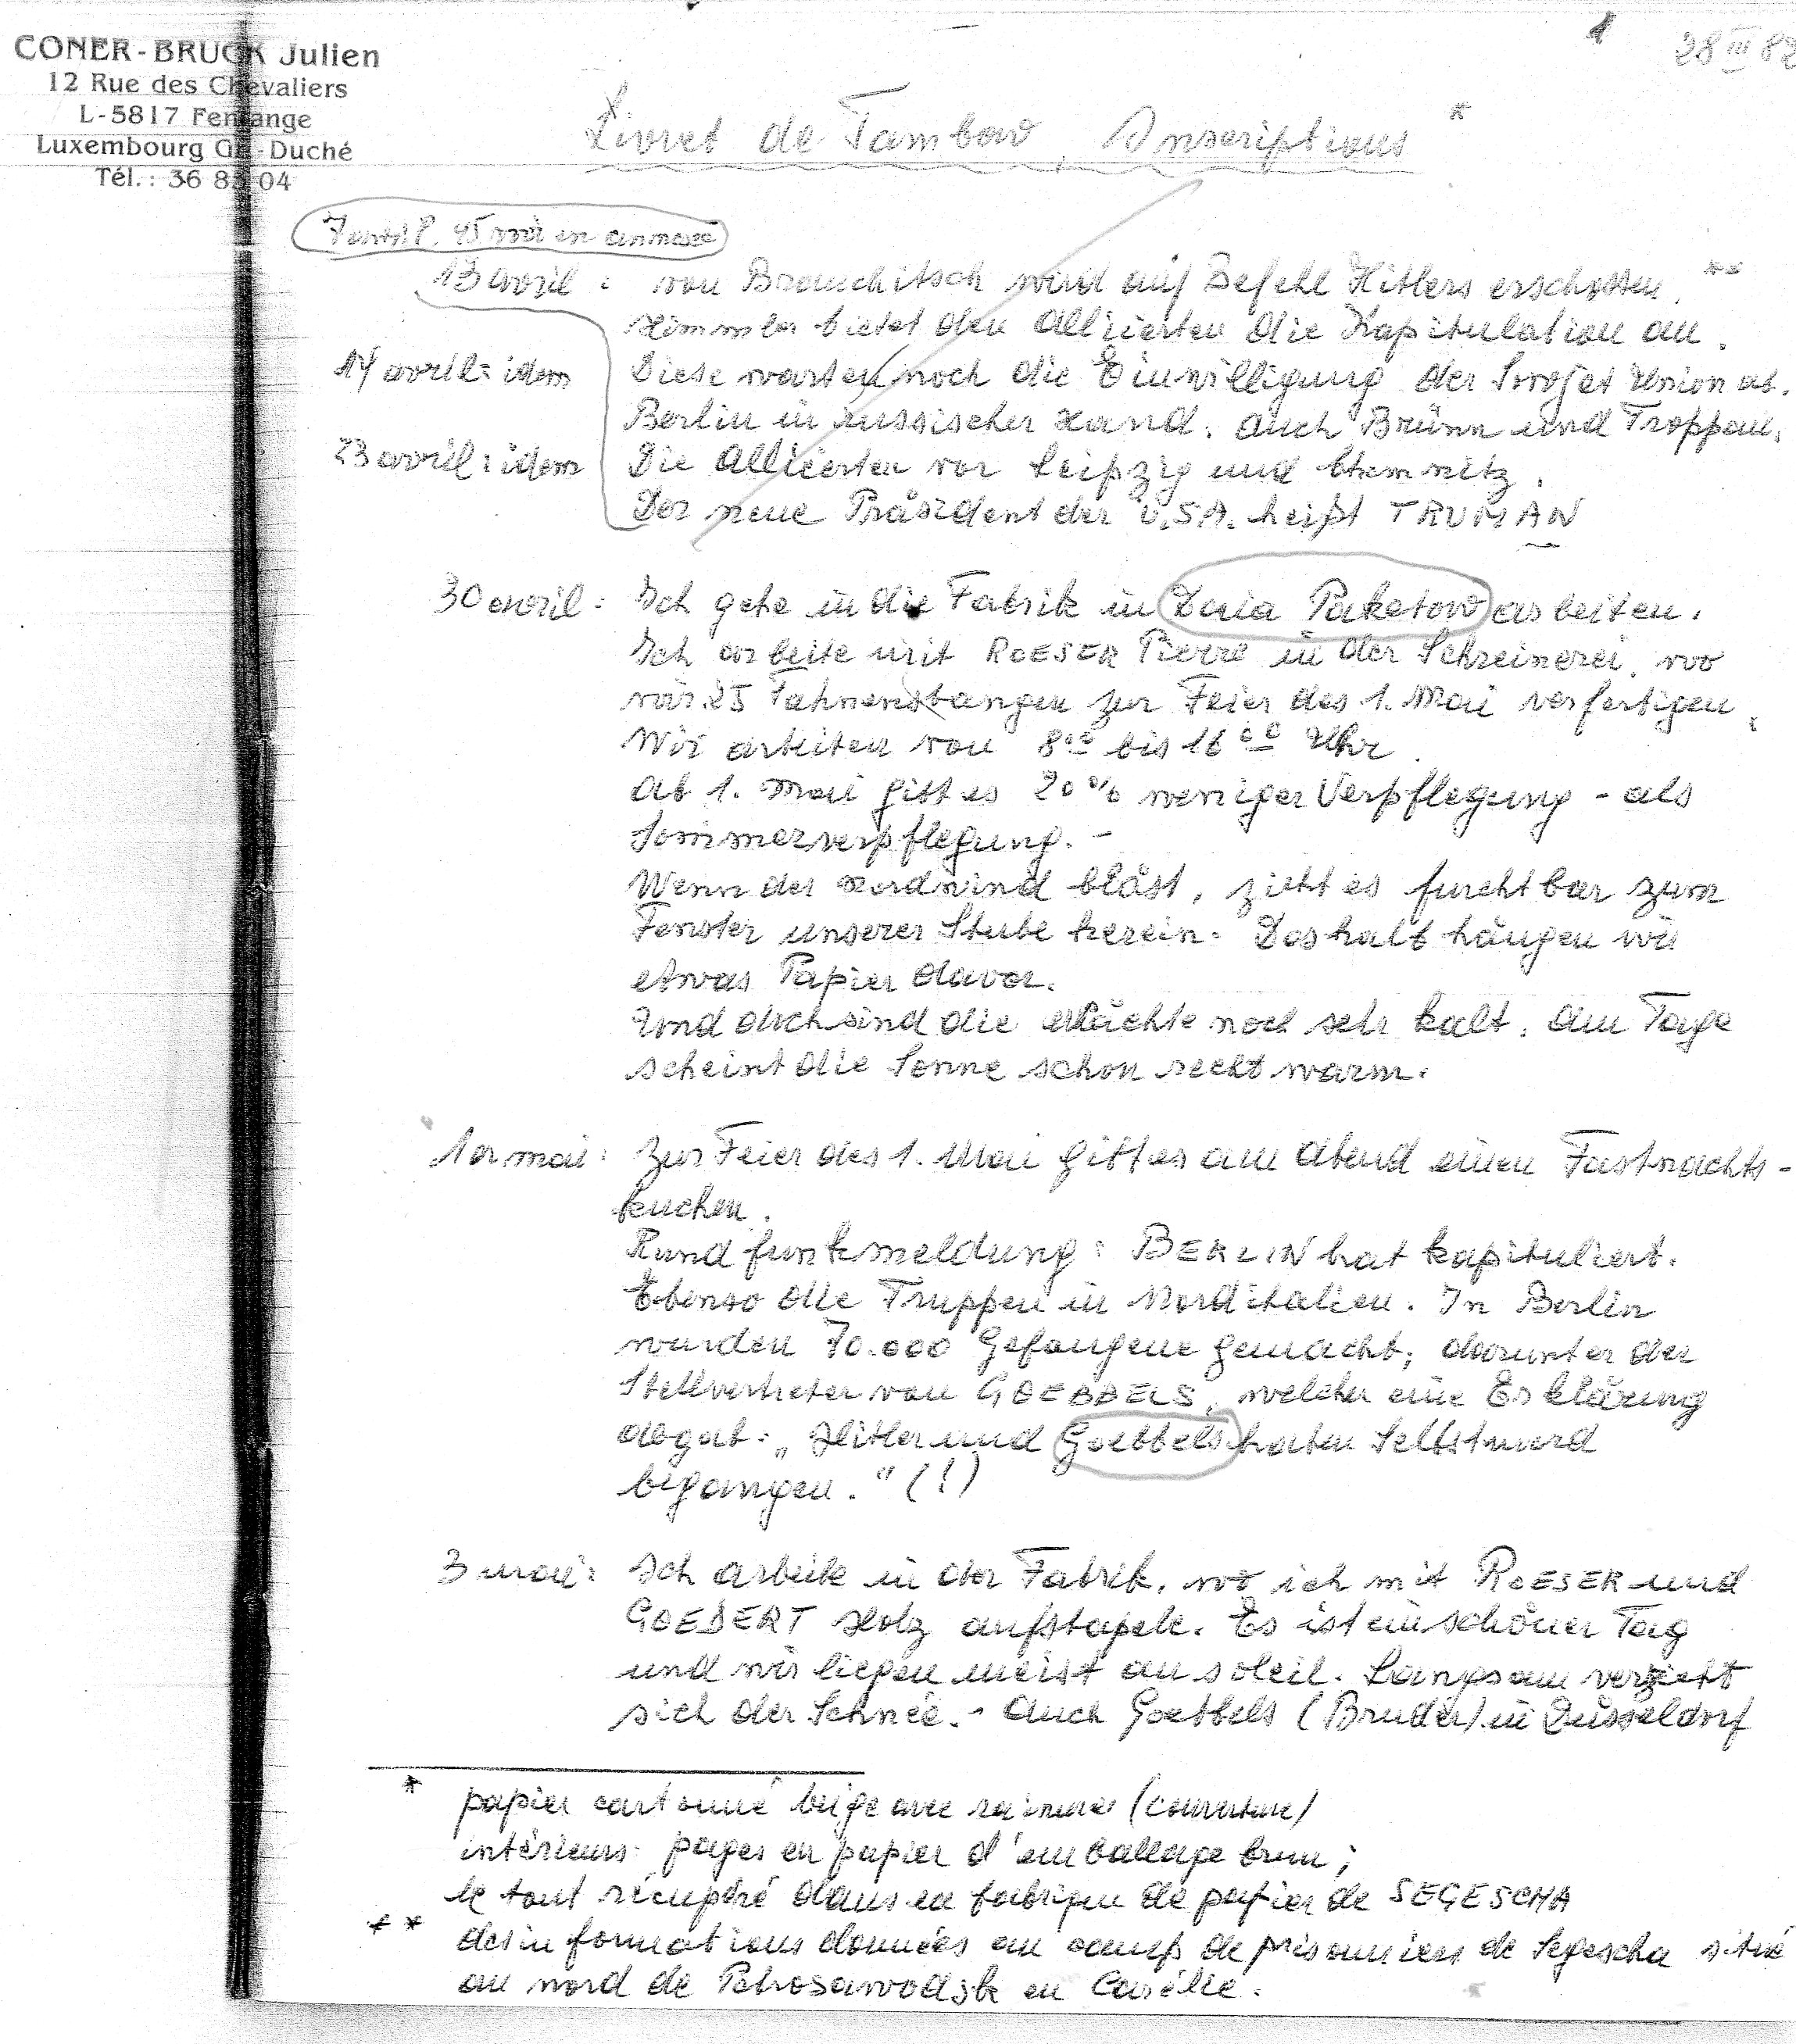 CONER-BRUCK Julien
12 Rue des Chevaliers
L-5817 Fentange
Luxembourg Gd-Duché
Tél.: 36 83 04
1
28 III 82
Livret de Tambow, Inscriptions *
45 voir en annexe
13 avril : von Brauchitsch wird auf Befehl Hitlers erschossen. **
Himmler bietet den Alliierten die Kapitulation an.
14 avril: idem Diese warten noch die Einwilligung der Sowjet Union ab.
Berlin in russischer Hand. Auch Brünn und Troppau.
23 avril: idem Die Alliierten vor Leipzig und Chemnitz.
Der neue Präsident der U.S.A. heißt TRUMAN
30 avril: Ich gehe in die Fabrik in Paketow arbeiten.
Ich arbeite mit ROESER Pierre in der Schreinerei, wo
wir 25 Fahnenstangen zur Feier des 1. Mai verfertigen.
Wir arbeiten von 8°° bis 16°° Uhr.
Ab 1. Mai gibt es 20% weniger Verpflegung - als
Sommerverpflegung. -
Wenn der Nordwind bläst, zieht es furchtbar zum
Fenster unserer Stube herein. Deshalb hängen wir
etwas Papier davor.
Und doch sind die Nächte noch sehr kalt. Am Tage
scheint die Sonne schon recht warm.
1er mai: Zur Feier des 1. Mai gibt es am Abend einen Fastnachts-
kuchen.
Rundfunkmeldung: BERLIN hat kapituliert.
Ebenso die Truppen in Norditalien. In Berlin
wurden 70.000 Gefangene gemacht; darunter der
Stellvertreter von GOEBBELS, welcher eine Erklärung
abgab: „Hitler und Goebbels haben Selbstmord
begangen." (!)
3 mai: Ich arbeite in der Fabrik, wo ich mit ROESER und
GOEDERT Holz aufstapele. Es ist ein schöner Tag
und wir liegen meist au soleil. Langsam verzieht
sich der Schnee. - Auch Goebbels (Bruder) in Düsseldorf
* papier cartonné beige avec rainures (couverture)
intérieurs: pages en papier d'emballage brun;
le tout récupéré dans la fabrique de papier de SEGESCHA
** des informations données au camp de prisonniers de Segescha situé
au nord de Petrosawodsk en Carélie.